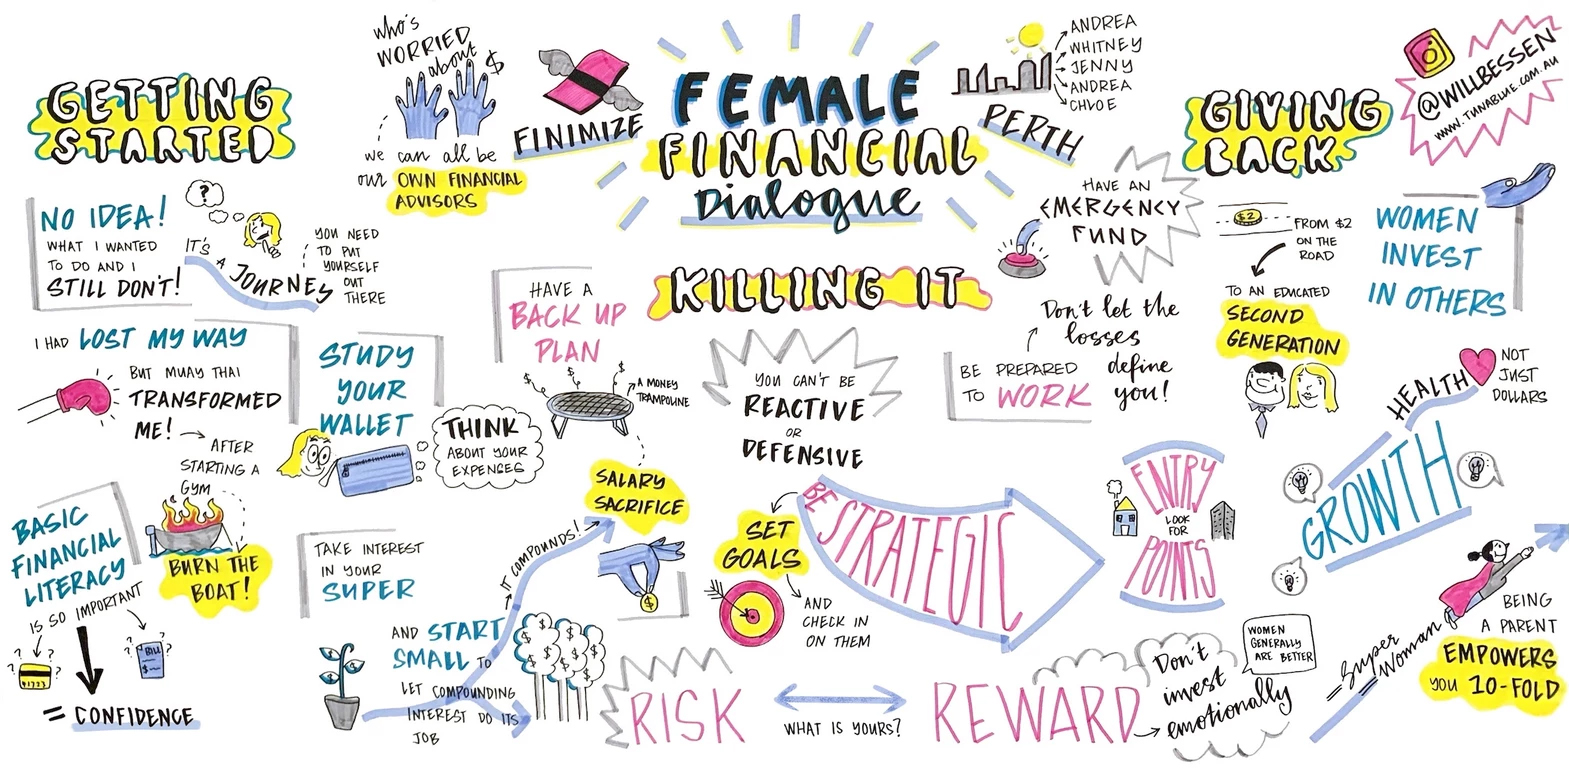 GETTING
STARTED
NO IDEA!
WHAT I WANTED
TO DO AND I
STILL DON'T!
?
IT'S
A
JOURNEY
YOU NEED
TO PUT
YOURSELF
OUT
THERE
I HAD LOST MY WAY
BUT MUAY THAI
TRANSFORMED
ME!
AFTER
STARTING A
GYM
BURN THE
BOAT!
BASIC
FINANCIAL
LITERACY
IS SO IMPORTANT
? ? ? ?
? ? ? ?
BILL
$
= CONFIDENCE
STUDY
YOUR
WALLET
THINK
ABOUT YOUR
EXPENSES
TAKE INTEREST
IN YOUR
SUPER
AND START
SMALL TO
LET COMPOUNDING
INTEREST DO ITS
JOB
IT COMPOUNDS!
$ $ $ $ $ $
SALARY
SACRIFICE
$
who's
WORRIED
about $
we can all be
our OWN FINANCIAL
ADVISORS
FINIMIZE
FEMALE
FINANCIAL
Dialogue
PERTH
ANDREA
WHITNEY
JENNY
ANDREA
CHLOE
KILLING IT
HAVE A
BACK UP
PLAN
$ $ $
A MONEY
TRAMPOLINE
YOU CAN'T BE
REACTIVE
OR
DEFENSIVE
HAVE AN
EMERGENCY
FUND
BE PREPARED
TO WORK
Don't let the
losses
define
you!
SET
GOALS
AND
CHECK IN
ON THEM
BE
STRATEGIC
ENTRY
LOOK
FOR
POINTS
RISK
WHAT IS YOURS?
REWARD
Don't
invest
emotionally
WOMEN
GENERALLY
ARE BETTER
GIVING
BACK
@WILLBESSEN
WWW.TUNABLUE.COM.AU
$2
FROM $2
ON THE
ROAD
TO AN EDUCATED
SECOND
GENERATION
WOMEN
INVEST
IN OTHERS
HEALTH
NOT
JUST
DOLLARS
GROWTH
=Super
Woman
BEING
A PARENT
EMPOWERS
YOU 10-FOLD